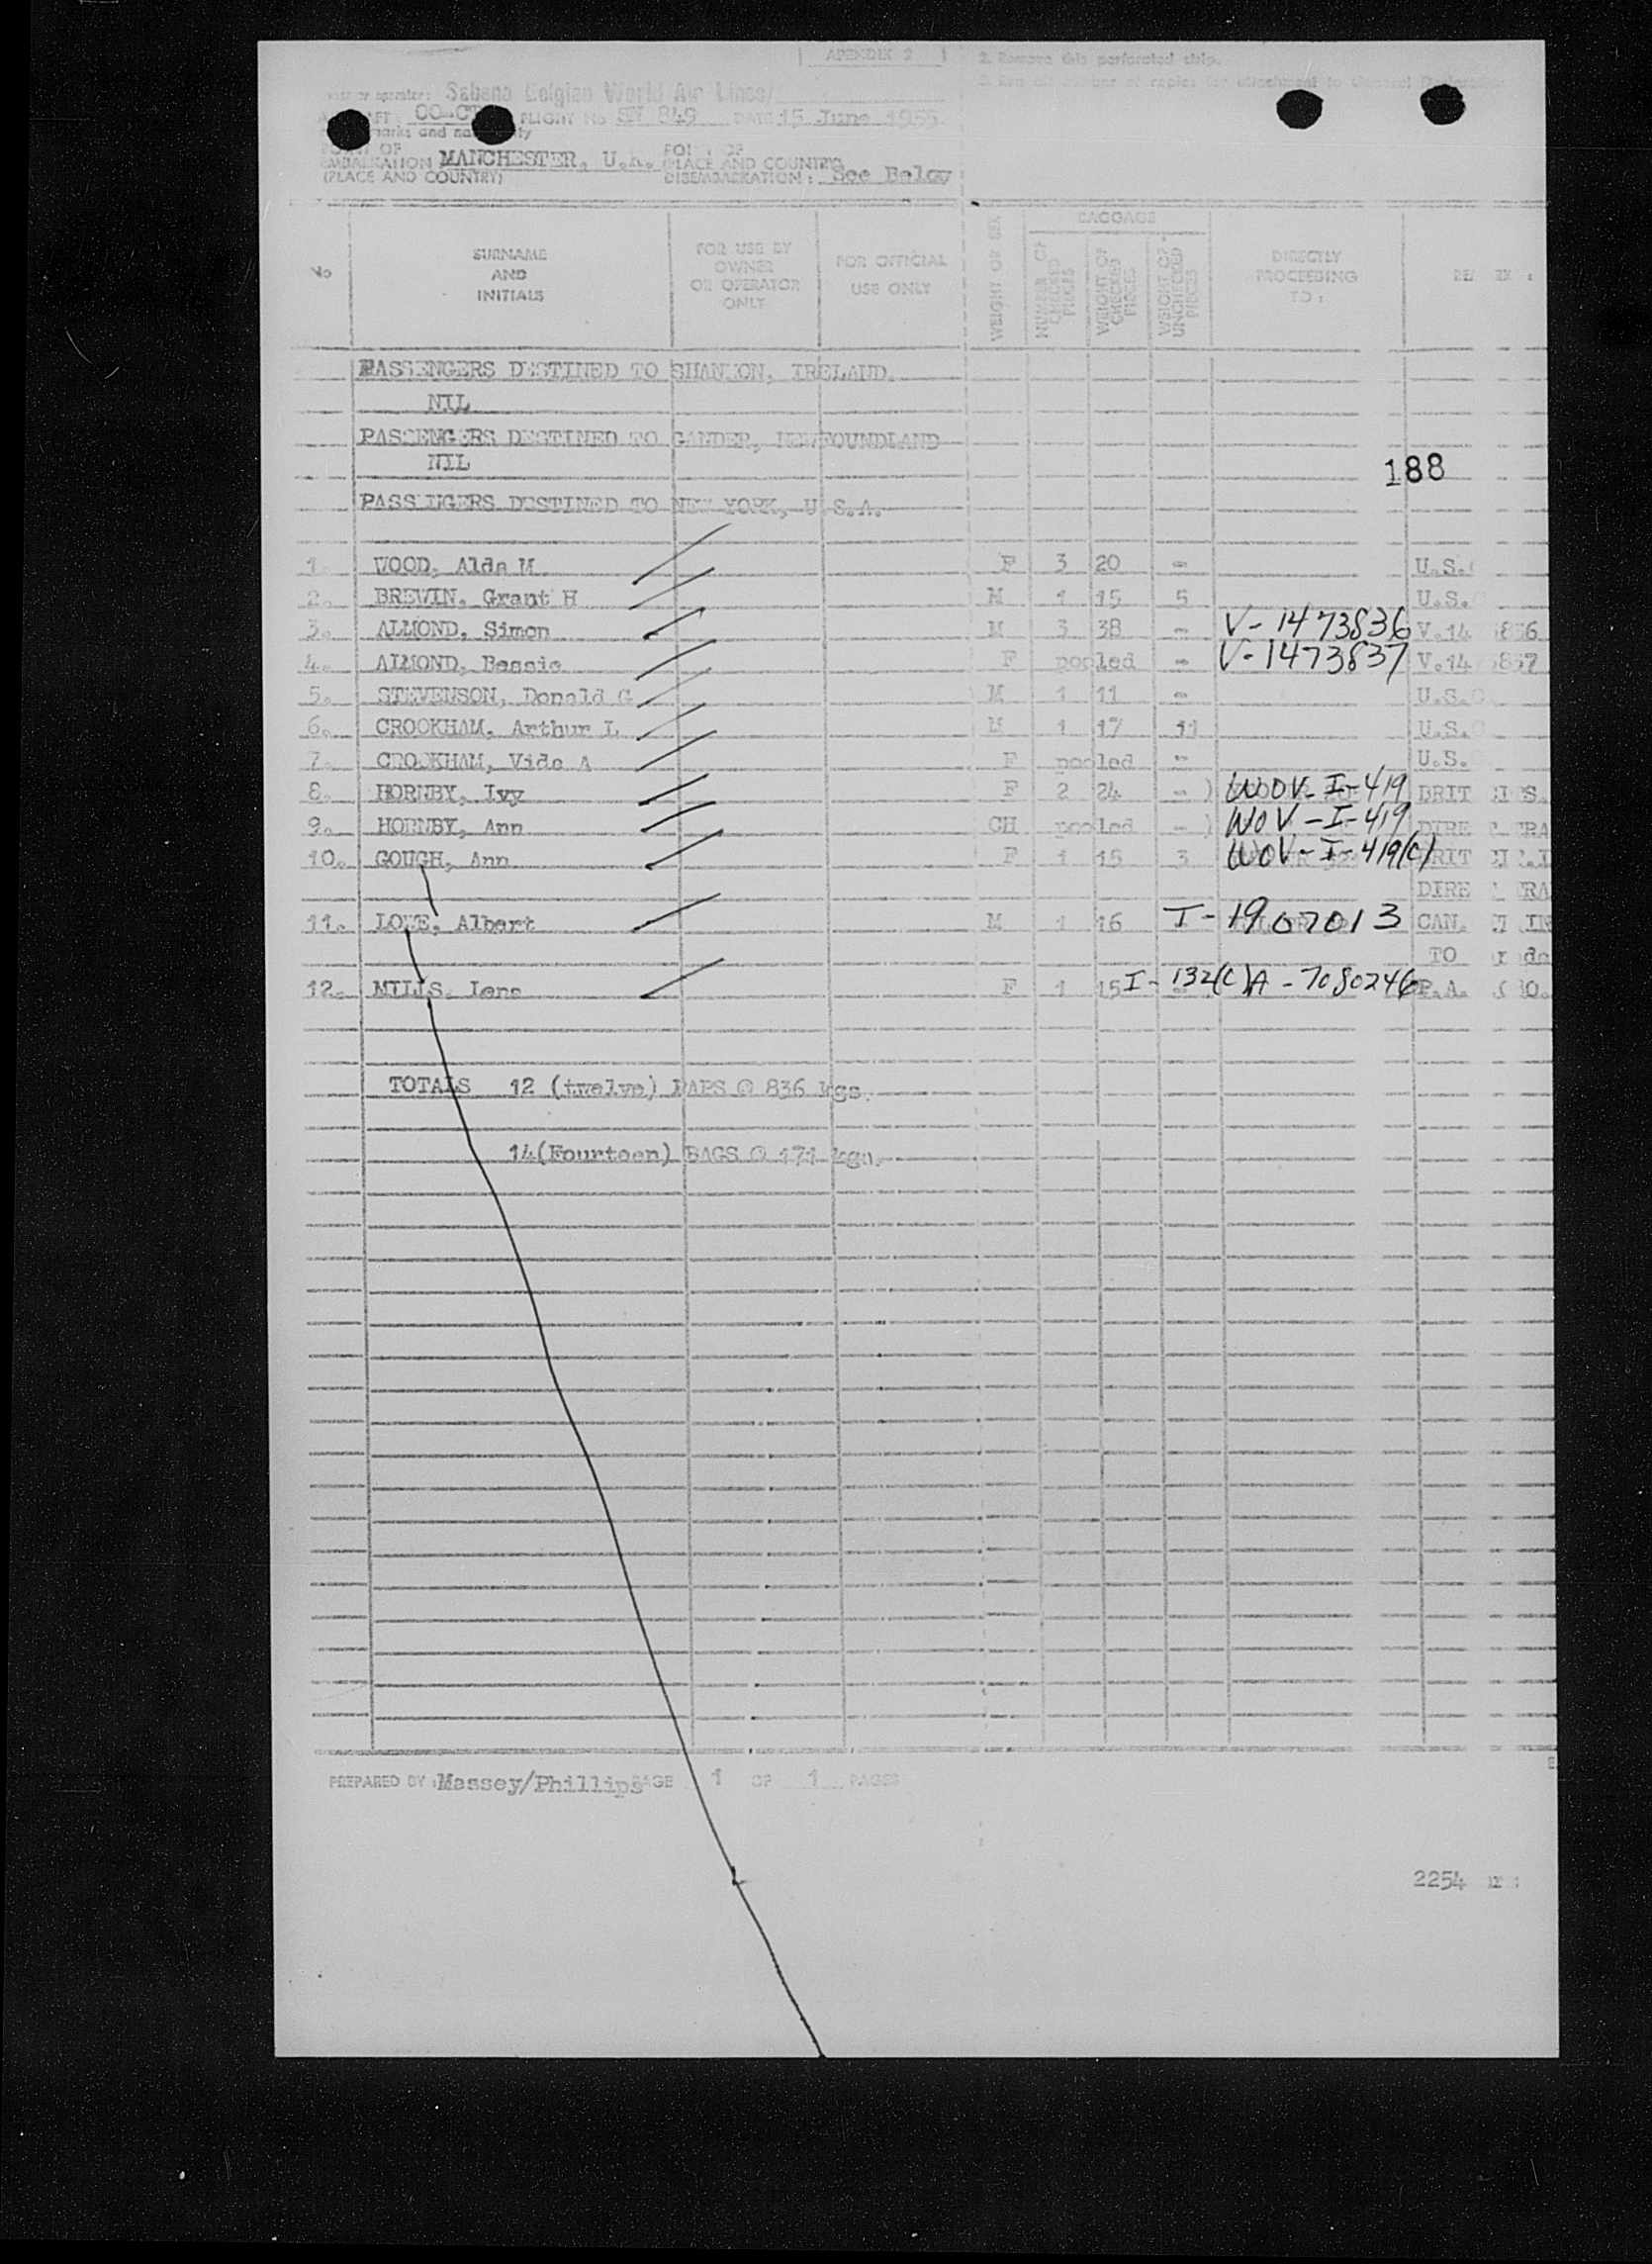 APENDIX 2
2. Remove this perforated strip.
Sabena Belgian World Air Lines/
FLIGHT No SN 849 DATE 15 June 1955
marks and
EMBARKATION MANCHESTER, U.K. (PLACE AND COUNTRY)
(PLACE AND COUNTRY) DISEMBARKATION: See Below
No
SURNAME AND INITIALS
FOR USE BY OWNER OR OPERATOR ONLY
FOR OFFICIAL USE ONLY
BAGGAGE
NUMBER OF CHECKED PIECES
WEIGHT OF CHECKED PIECES
WEIGHT OF UNCHECKED PIECES
DIRECTLY PROCEEDING TO:
PASSENGERS DESTINED TO SHANNON, IRELAND.
NIL
PASSENGERS DESTINED TO GANDER, NEWFOUNDLAND
NIL
188
PASSENGERS DESTINED TO NEW YORK, U.S.A.
1. WOOD, Alda M F 3 20 - U.S.
2. BREWIN, Grant H M 1 15 5 U.S.
3. ALMOND, Simon M 3 38 - V-1473836 V.14
4. ALMOND, Bessie F pooled - V-1473837 V.14
5. STEVENSON, Donald G M 1 11 - U.S.
6. CROOKHAM, Arthur L M 1 17 11 U.S.
7. CROOKHAM, Vida A F pooled - U.S.
8. HORNBY, Ivy F 2 24 - ) WOOV-I-419 BRIT
9. HORNBY, Ann CH pooled - ) WOV-I-419 DIRE
10. GOUGH, Ann F 1 15 3 WOV-I-419(C) BRIT
DIRE
11. LOWE, Albert M 1 16 I-1907013 CAN.
TO
12. MILLS, Lena F 1 15 I-132(C)A-7080246 P.A.
TOTALS 12 (twelve) PAPS @ 836 kgs.
14(Fourteen) BAGS @ 171 kgs.
PREPARED BY: Massey/Phillips PAGE 1 OF 1 PAGES
2254